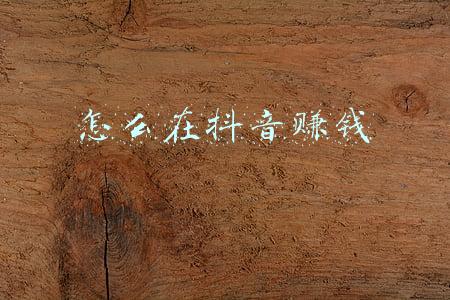 怎么在抖音赚钱